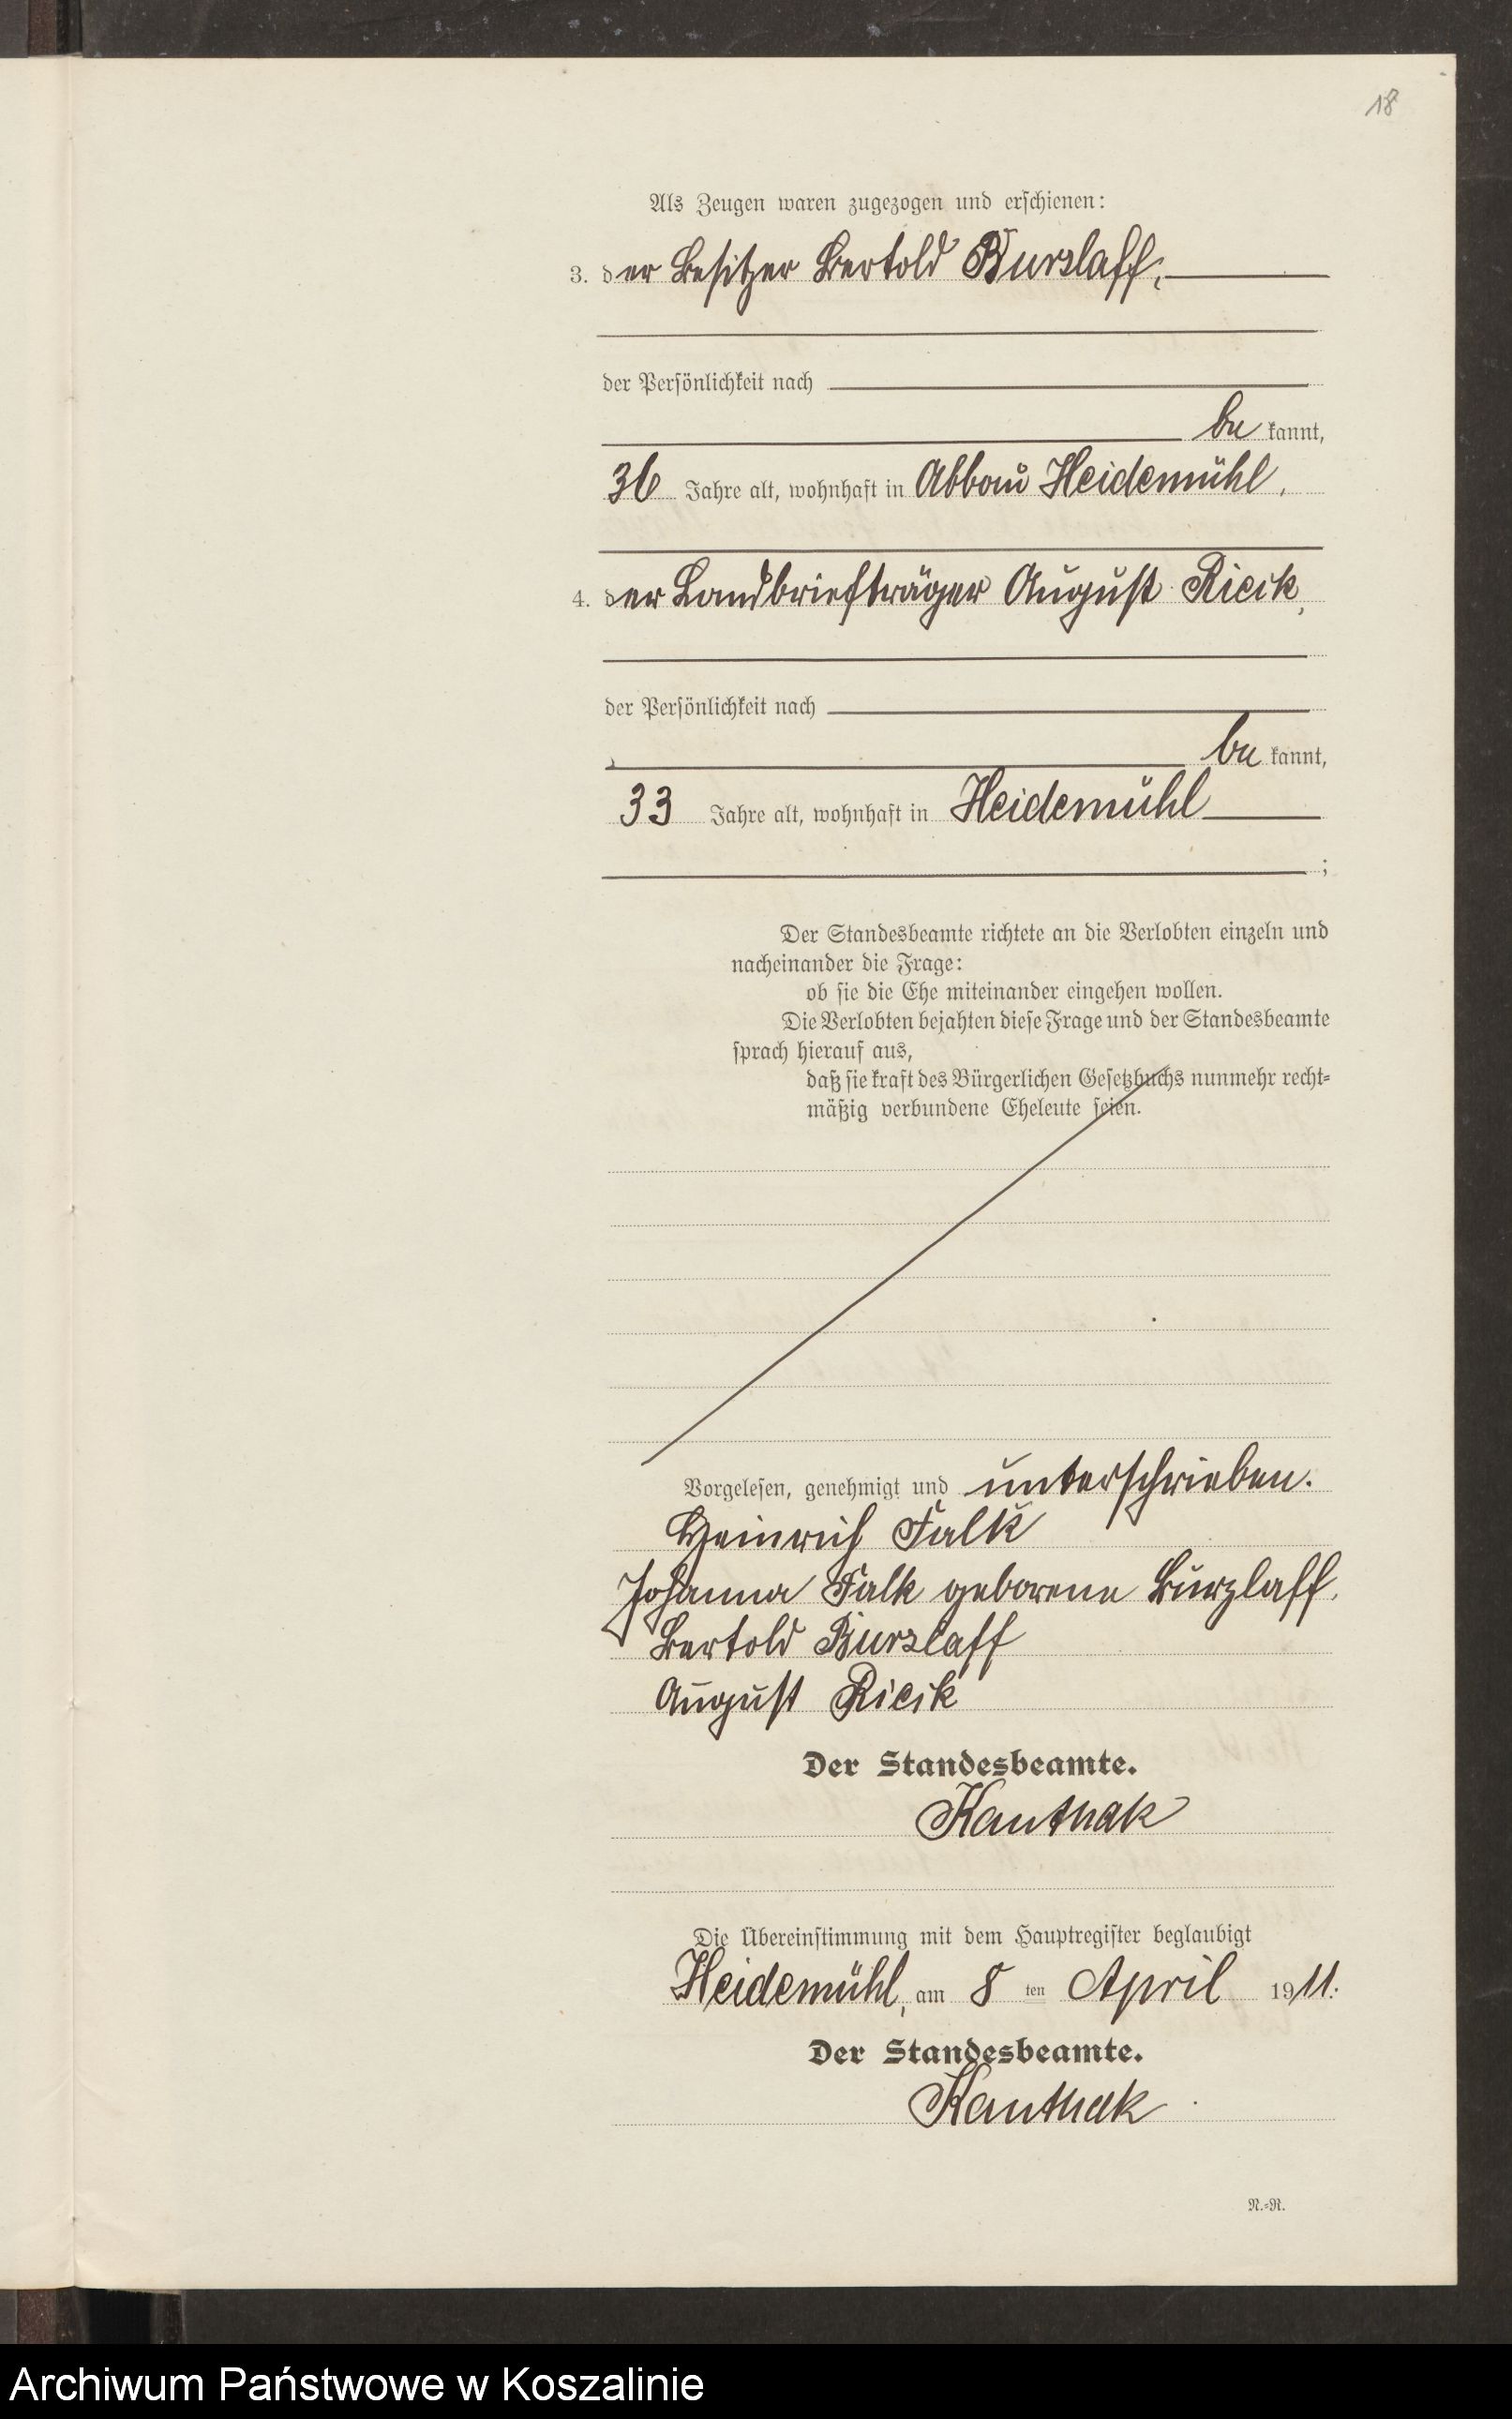 18
Als Zeugen waren zugezogen und erschienen:
3. der Besitzer Bertold Burzlaff,
der Persönlichkeit nach
be kannt,
36 Jahre alt, wohnhaft in Abbau Heidemühl,
4. der Landbriefträger August Ricik,
der Persönlichkeit nach
be kannt,
33 Jahre alt, wohnhaft in Heidemühl
;
Der Standesbeamte richtete an die Verlobten einzeln und
nacheinander die Frage:
ob sie die Ehe miteinander eingehen wollen.
Die Verlobten bejahten diese Frage und der Standesbeamte
sprach hierauf aus,
daß sie kraft des Bürgerlichen Gesetzbuchs nunmehr recht-
mäßig verbundene Eheleute seien.
Vorgelesen, genehmigt und unterschrieben.
Heinrich Falk
Johanna Falk geborene Burzlaff.
Bertold Burzlaff
August Ricik
Der Standesbeamte.
Kauthak
Die Übereinstimmung mit dem Hauptregister beglaubigt
Heidemühl, am 8 ten April 1911.
Der Standesbeamte.
Kauthak
N.-R.
Archiwum Państwowe w Koszalinie